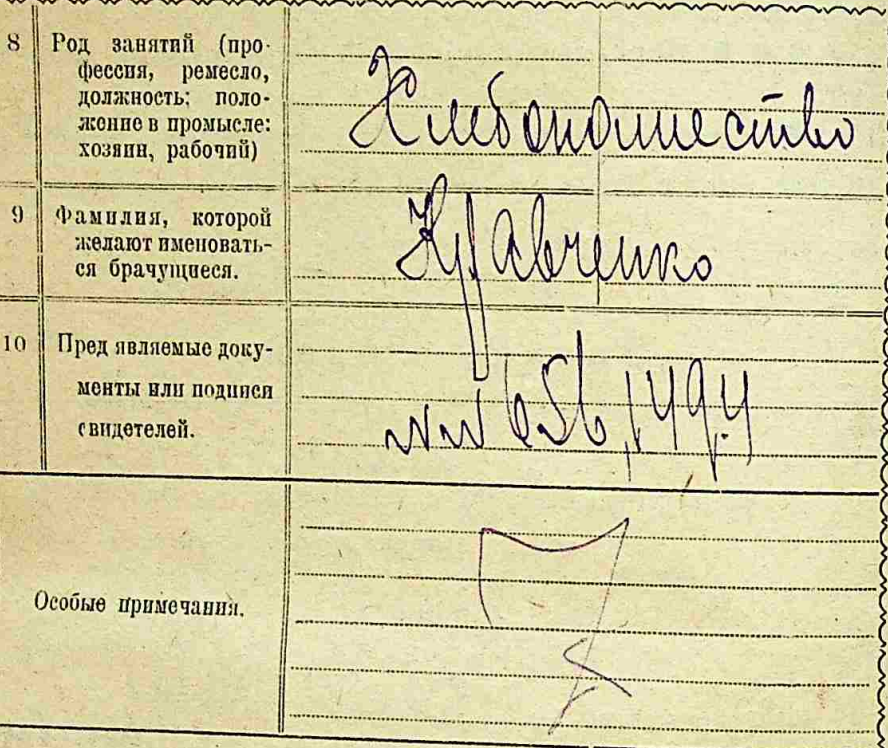 8 Род занятий (про-
фессия, ремесло,
должность: поло-
жение в промысле:
хозяин, рабочий)
Хлебопашество
9 Фамилия, которой
желают именовать-
ся брачущиеся.
Кравченко
10 Пред являемые доку-
менты или подписи
свидетелей.
Особые примечания.